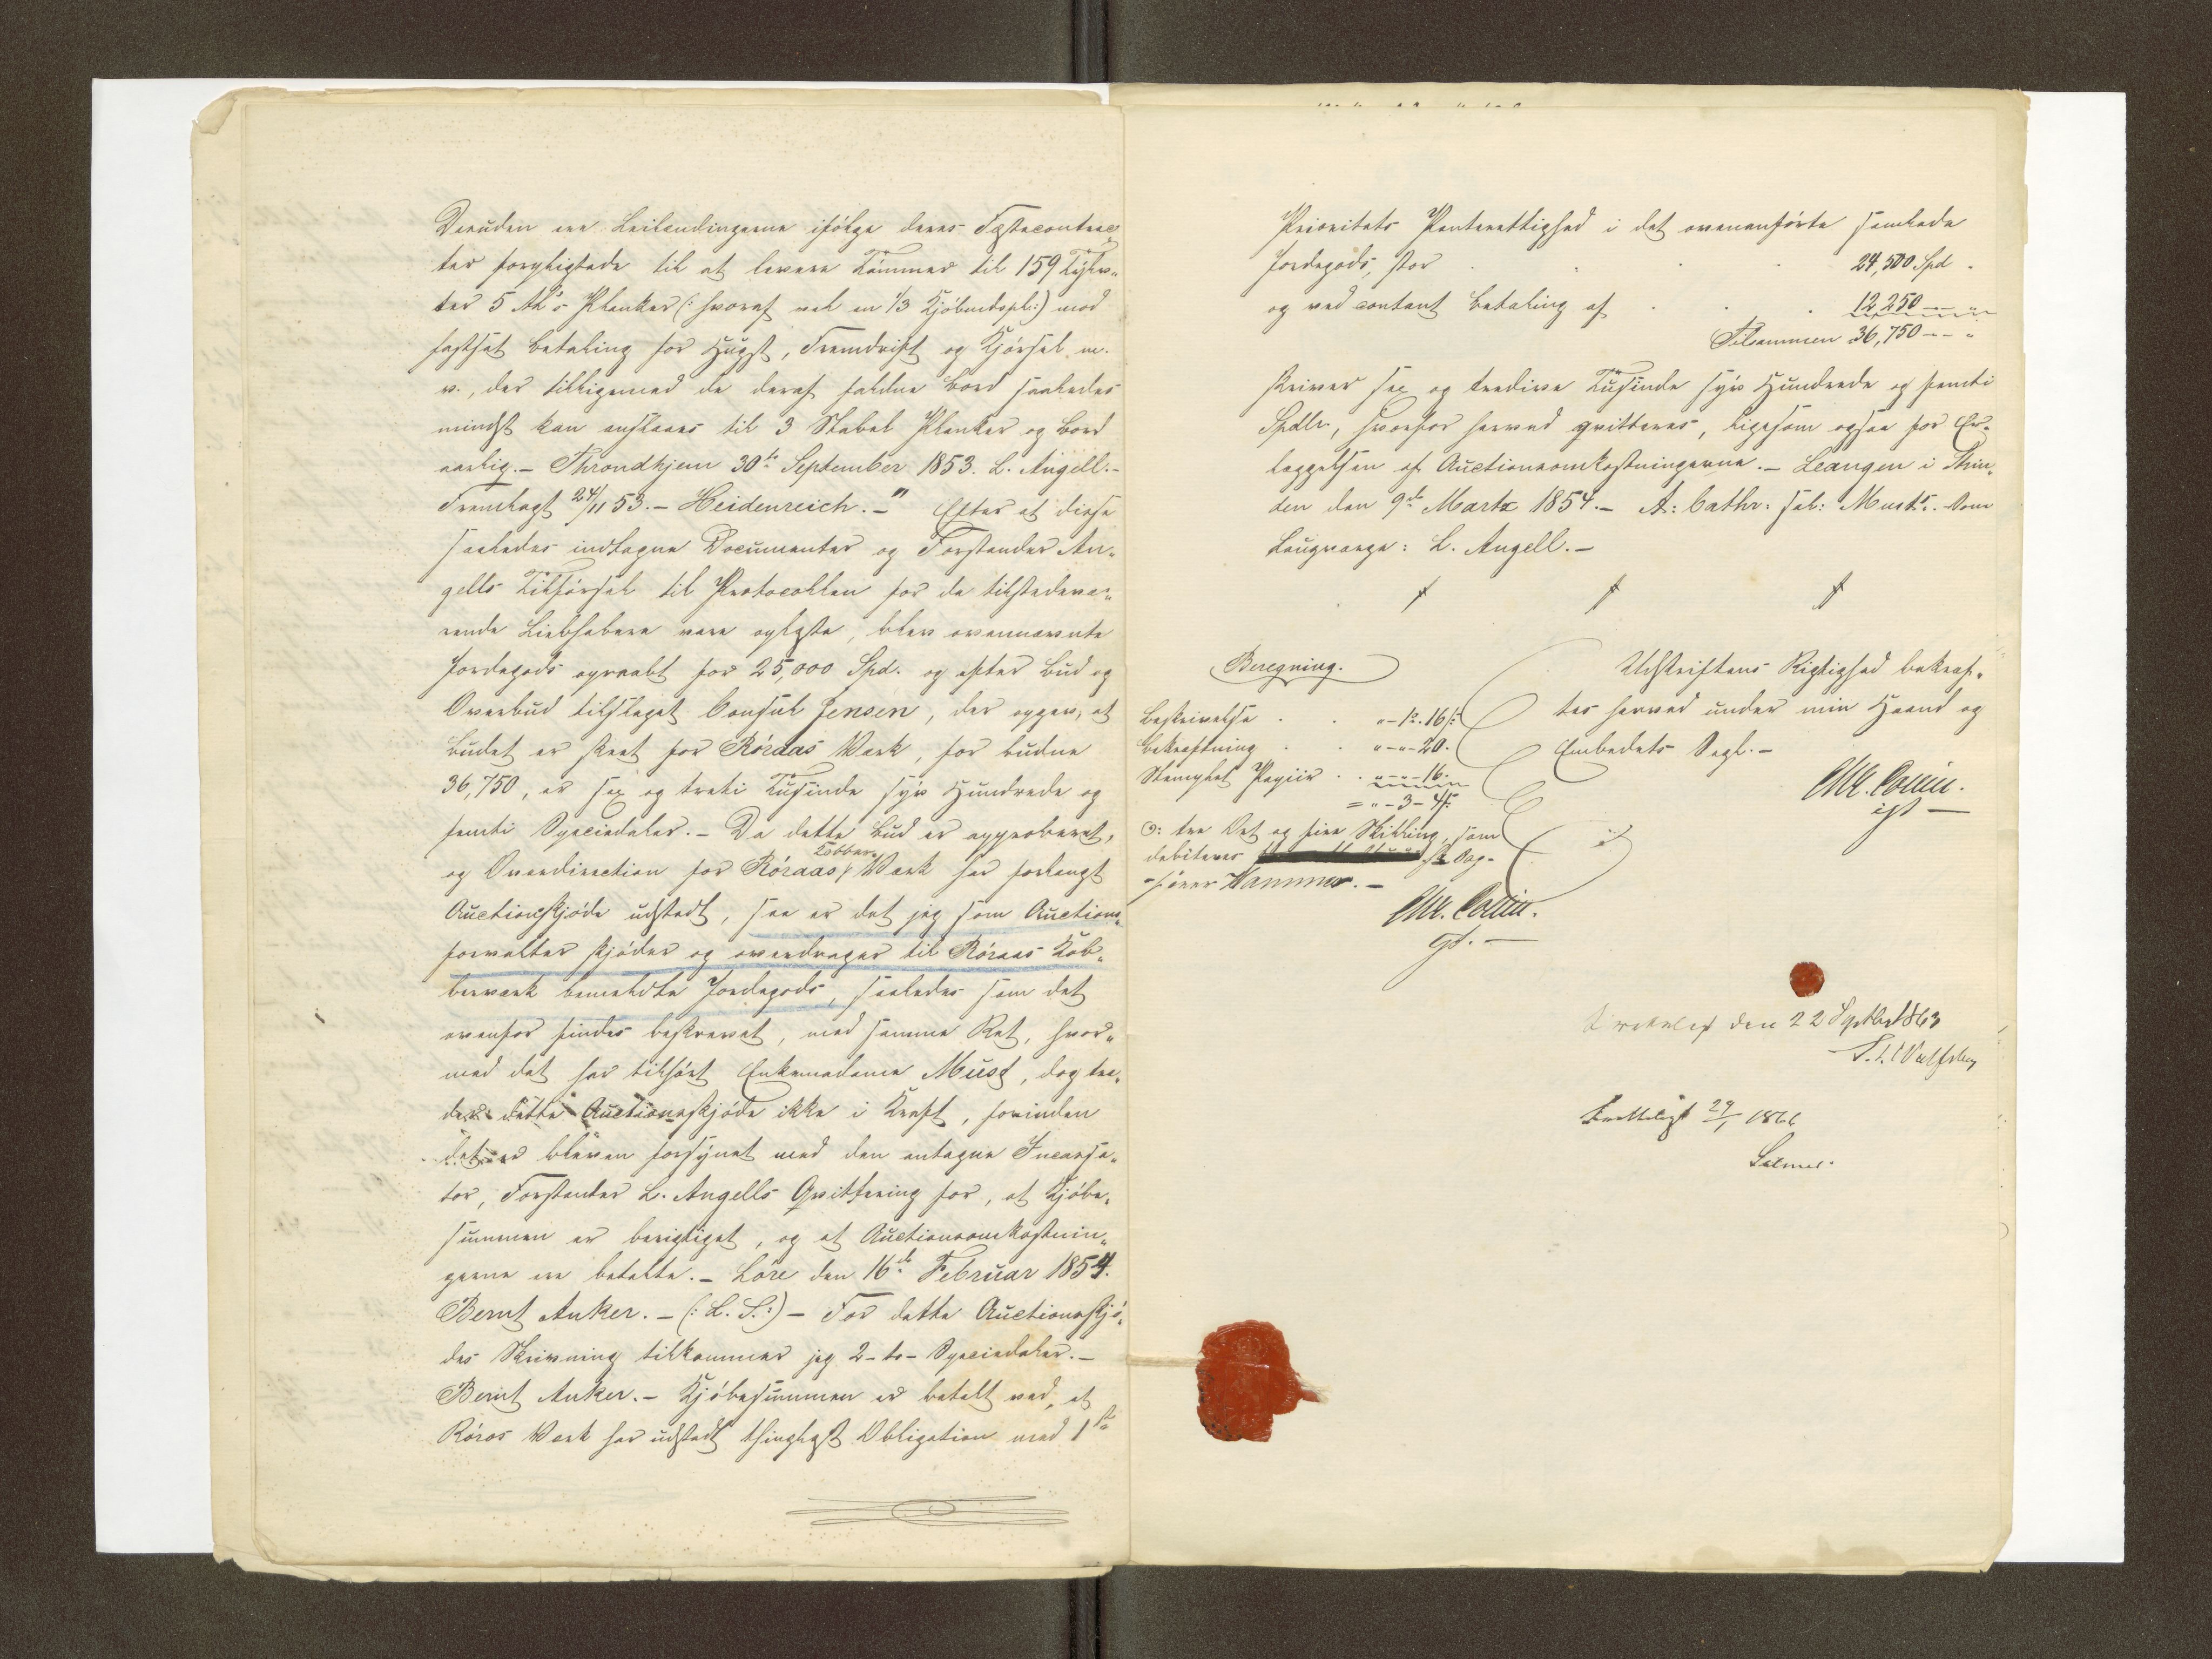 Desuden ere Leilendingerne ifölge deres Fæstecontrac„
ter forpligtede til at levere Tömmer til 159 Tylv„
ter 5 Al's Planker (: hvoraf vel en 1/3 Kjöbmdspl:) mod
fastsat Betaling for Hugst, Fremdrift og Kjörsel m.
v., der tilligemed de deraf faldne Bord saaledes
mindst kan anslaaes til 3 Stabel Planker og Bord
aarlig.- Throndhjem 30te September 1853. L. Angell.-
Fremlagt 24/11 53.- Heidenreich.-" Efter at disse
saaledes indtagne Documenter og Forstander An„
gells Tilförsel til Protocollen for de tilstedevæ„
rende Liebhabere vare oplæste, blev ovennævnte
Jordegods opraabt for 25,000 Spd. og efter Bud og
Overbud tilslaget Consul Jensen, der opgav, at
Budet er skeet for Röraas Værk, for budne
36,750, er sex og treti Tusinde syv Hundrede og
femti Speciedaler.- Da dette Bud er approberet,
og Overdirection for Röraas Kobber Værk har forlangt
Auctionsskjöde udstedt, saa er det jeg som Auctions„
forvalter skjöder og overdrager til Röraas Kob„
berværk bemeldte Jordegods, saaledes som det
ovenfor findes beskrevet, med samme Ret, hvor„
med det har tilhört Enkemadame Must, dog træ„
der dette Auctionsskjöde ikke i Kraft, forinden
det er bleven forsynet med den antagne Incassa„
tor, Forstander L. Angells Qvittering for, at Kjöbe„
summen er berigtiget, og at Auctionsomkostnin„
gerne ere betalte.- Löre den 16de Februar 1854.
Bernt Anker.- (: L. S.:) - For dette Auctionsskjö„
des Skrivning tilkommer jeg 2- to- Speciedaler.-
Bernt Anker.- Kjöbesummen er betalt ved, at
Röros Værk har udstedt thinglæst Obligation med 1ste
Prioritets Panterettighed i det ovenanförte samlede
Jordegods, stor . . . 24,500 Spd.
og ved contant Betaling af . . 12,250 -- "
Tilsammen 36,750 -- "
skriver sex og tredive Tusinde syv Hundrede og femti
Spdlr., hvorfor herved qvitteres, ligesom ogsaa for Er„
læggelsen af Auctionsomkostningerne.- Leangen i Strin„
den den 9de Marts 1854.- A: Cathr: sal: Must's. Som
Laugværge: L. Angell.-
Beregning.
Beskrivelse . . "-1 Ort. 16 s:
Bekræftning . . "-"-20.
Stemplet Papiir . . "-"-16.
= "-3-4 s.
ɔ: tre Ort og fire Skilling, som
debiteres Sag-
förer Hammer.-
Chr. Collin.
cst.-
Udskriftens Rigtighed bekræf„
tes herved under min Haand og
Embedets Segl.-
Chr. Collin.
cst-
den 22 Septbr 1863
Fremlagt 29/1 1866